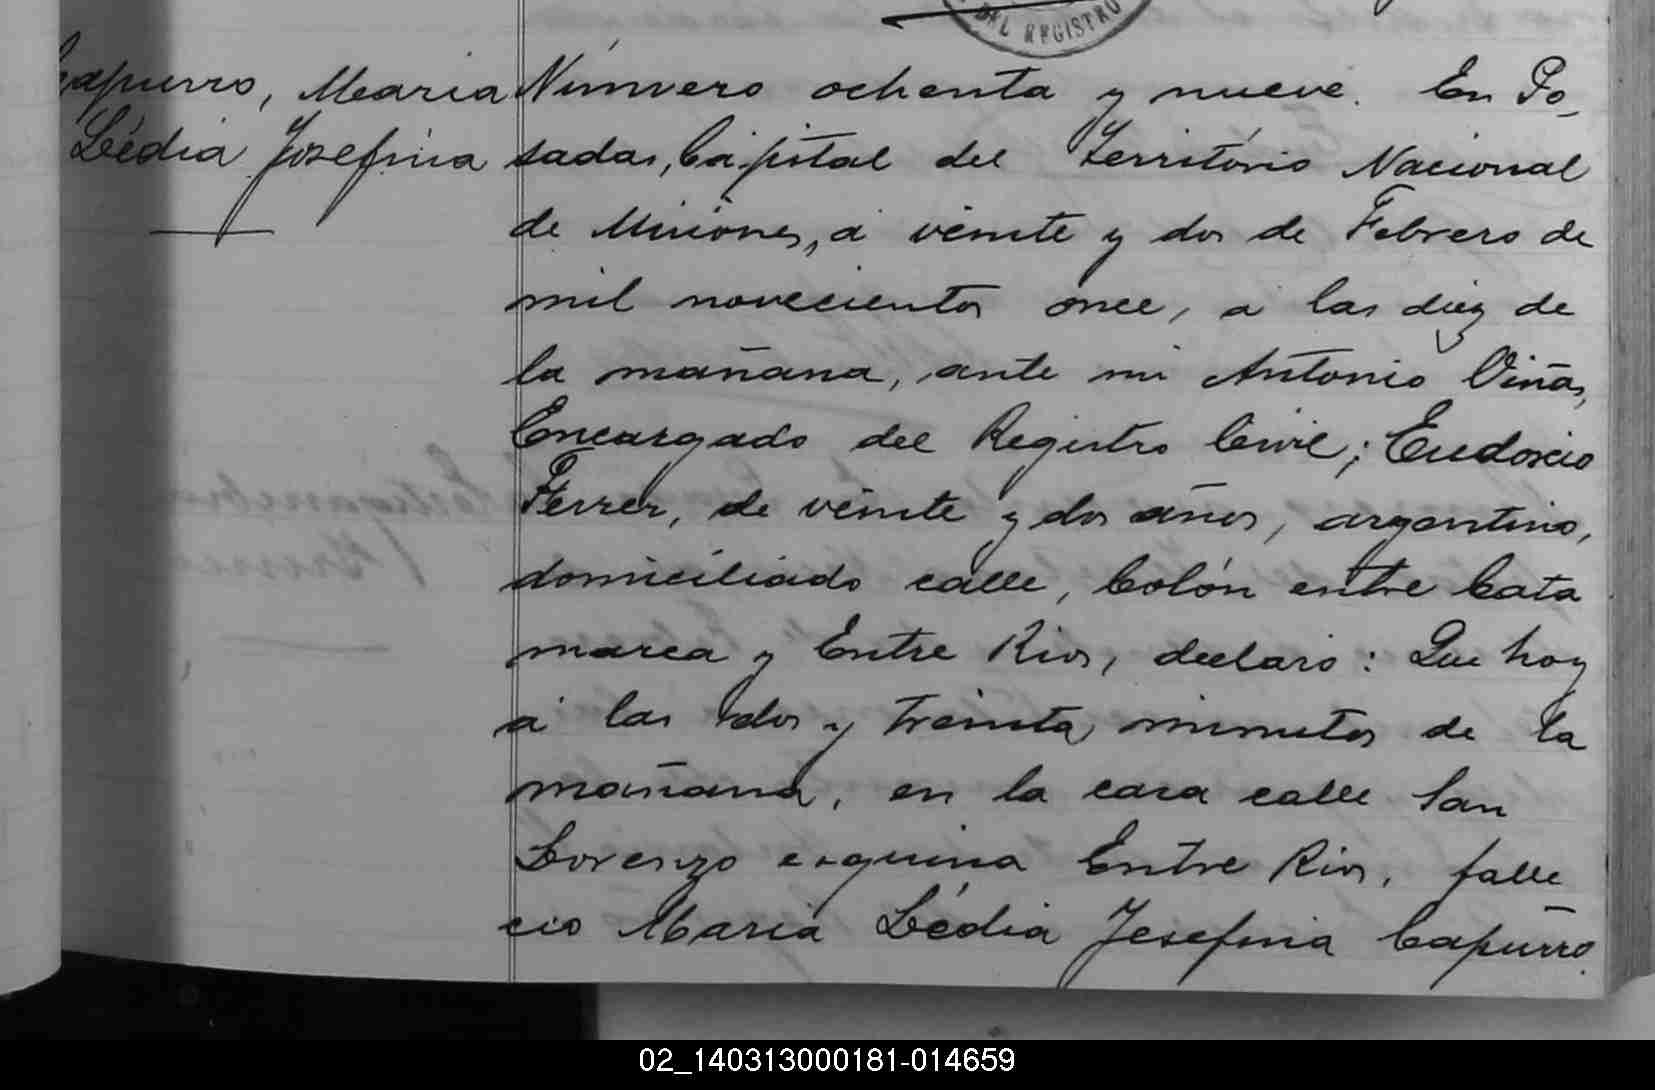 DEL REGISTRO
Capurro, Maria
Lédia Josefina
Número ochenta y nueve. En Po-
sadas, Capital del Territorio Nacional
de Misiones, á veinte y dos de Febrero de
mil novecientos once, á las diez de
la mañana, ante mi Antonio Viñas,
Encargado del Registro Civil; Eudoxio
Ferrer, de veinte y dos años, argentino,
domiciliado calle, Colón entre Cata
marca y Entre Rios, declaró: Que hoy
á las dos y treinta minutos de la
mañana, en la casa calle San
Lorenzo esquina Entre Rios, falle
ció Maria Lédia Josefina Capurro
02_140313000181-014659